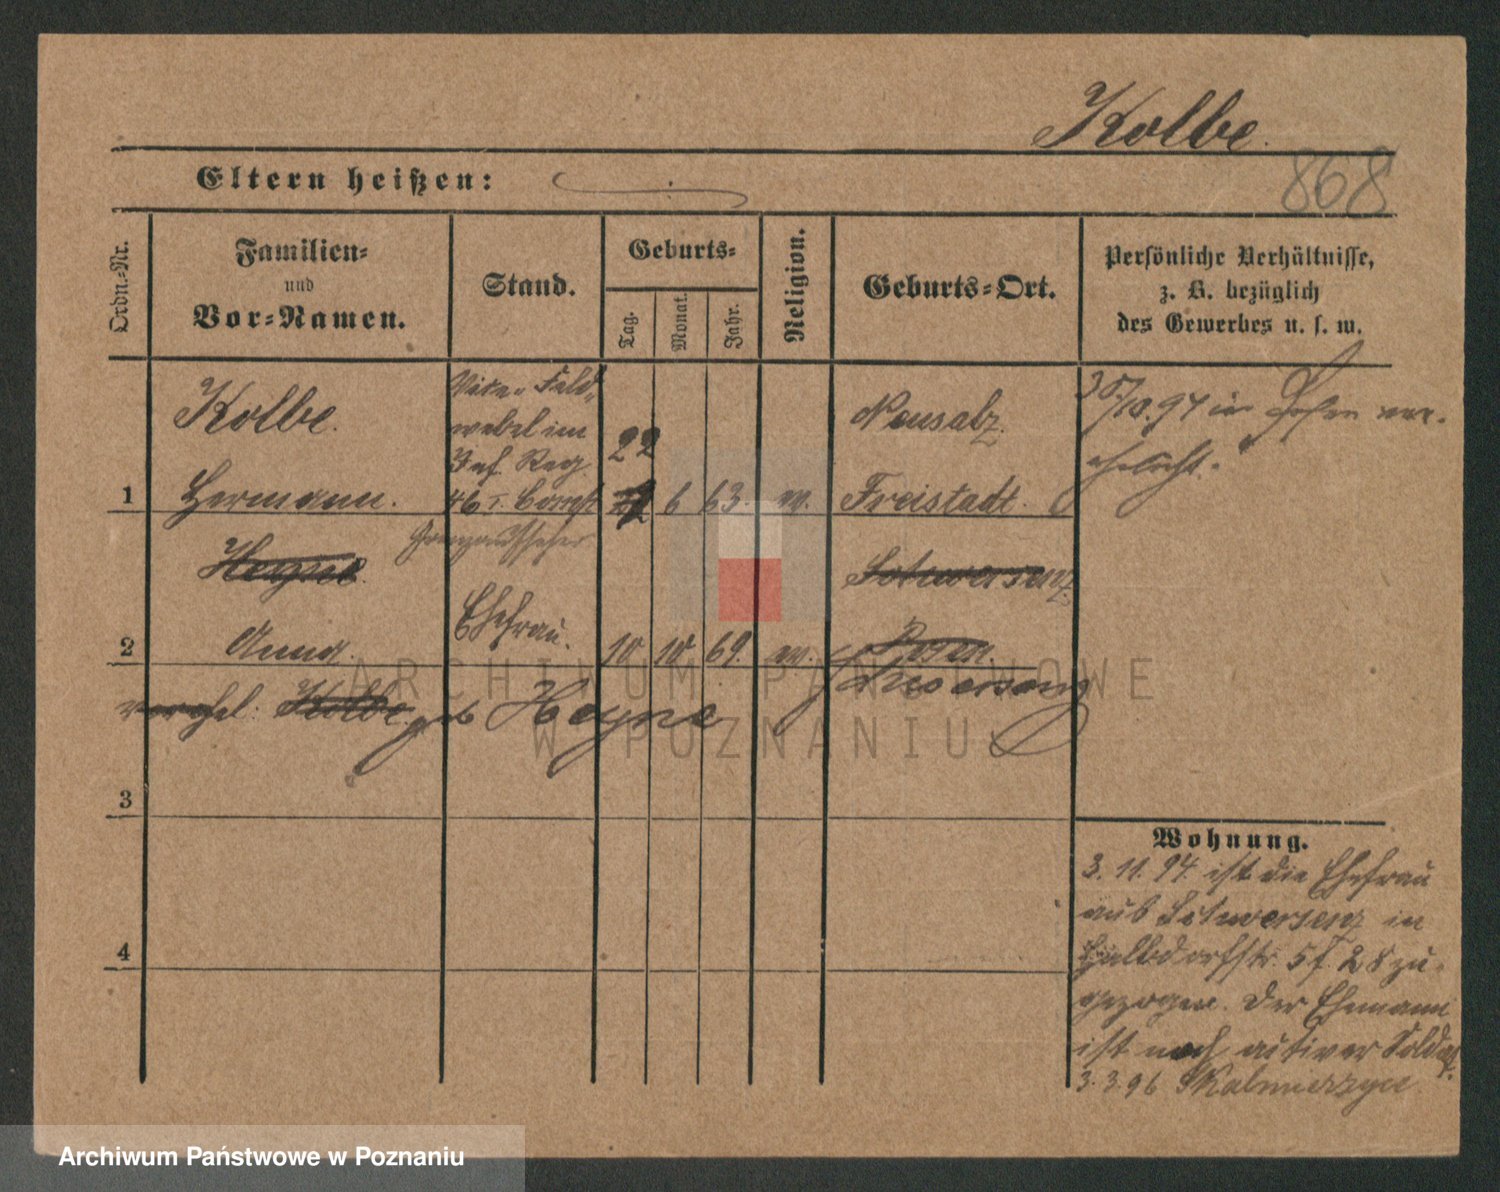 Kolbe.
868
Eltern heißen:
Ordn.-Nr.
Familien-
und
Vor-Namen.
Stand.
Geburts-
Tag.
Monat.
Jahr.
Religion.
Geburts-Ort.
Persönliche Verhältnisse,
z. B. bezüglich
des Gewerbes u. s. w.
Kolbe.
Vize-Feld-
webel im
Inf. Reg.
22
Neusalz.
/10.94 in Posen ver-
ehelicht.
1
Hermann.
46
6
63.
Freistadt.
Grenzaufseher
2
Anna.
Ehefrau.
10
10
69.
Posen
Schwersenz
verehel. Kolbe geb Heyne
3
4
Wohnung.
3. 11. 94. ist die Ehefrau
aus Schwersenz in
Halbdorfstr. 5 f. 28 zu-
gezogen. Der Ehemann
ist noch aktiver Soldat.
3. 3. 96 Skalmierzyce
ARCHIWUM PAŃSTWOWE
W POZNANIU
Archiwum Państwowe w Poznaniu